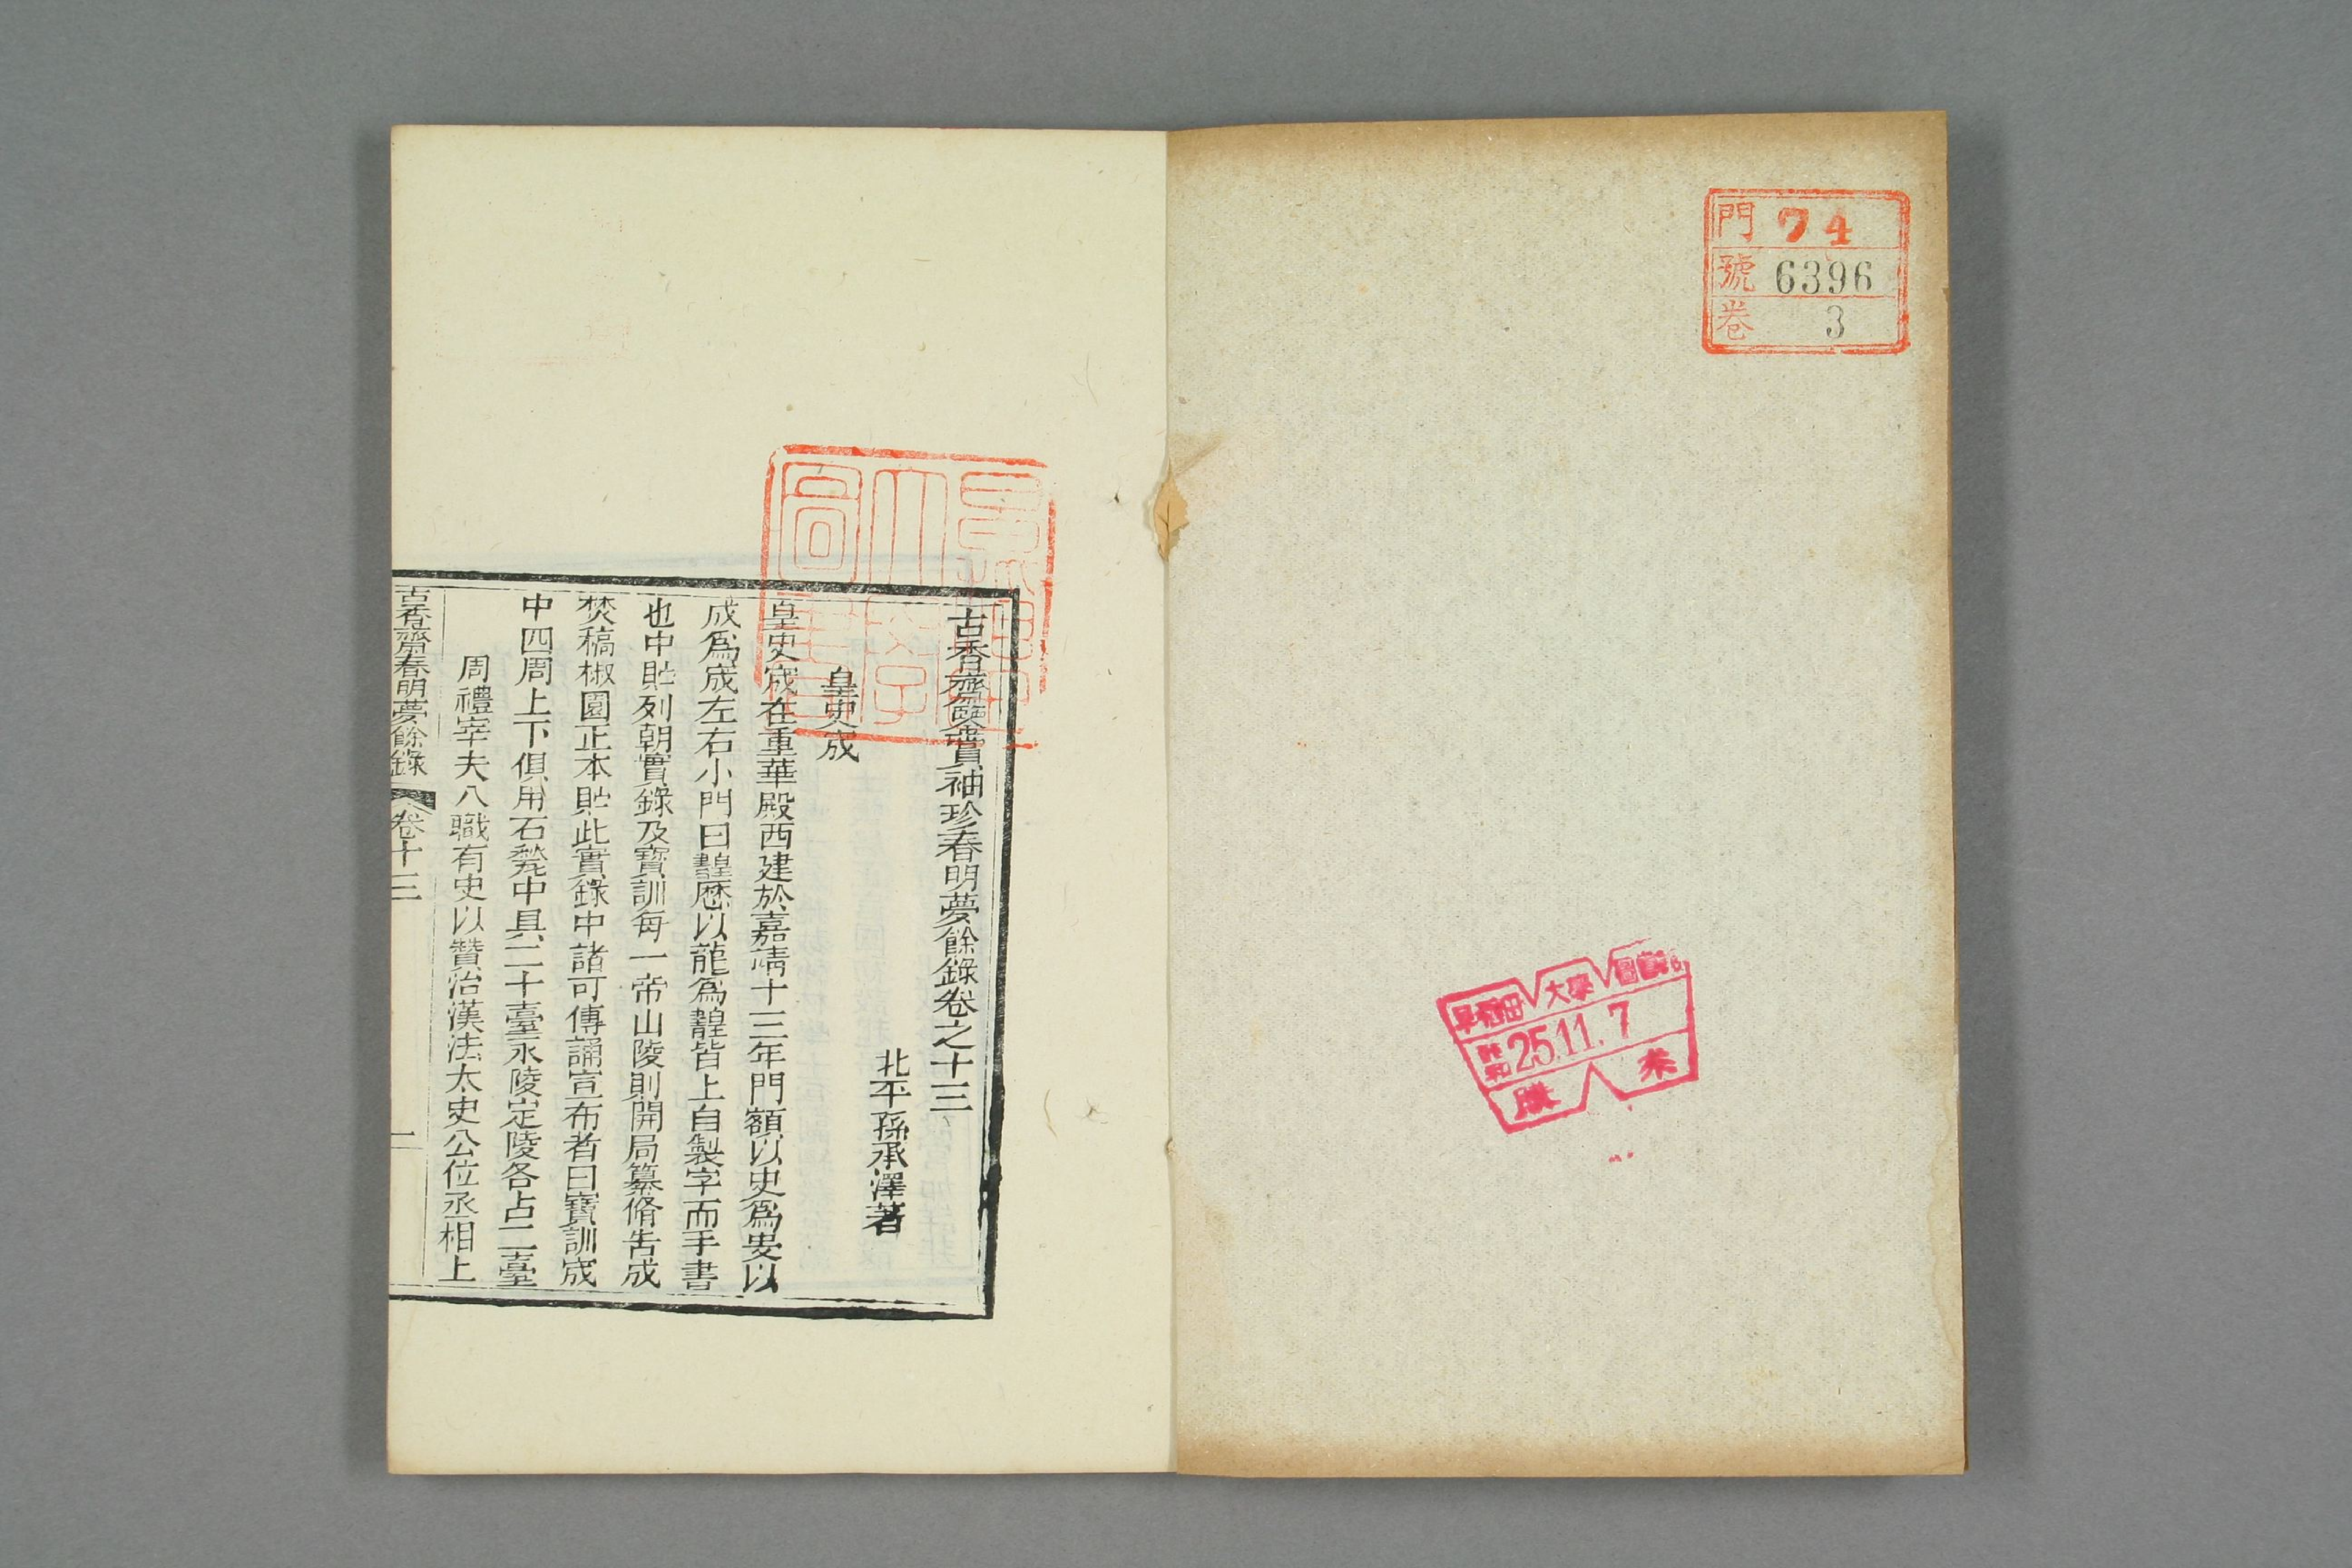 門 74
號 6396
卷 3
早稻田 大學 圖書
昭和 25.11.7
購 来
古香齋鑒賞袖珍春明夢餘錄卷之十三
北平孫承澤著
皇史宬
皇史宬在重華殿西建於嘉靖十三年門額以史為叓以
成爲宬左右小門曰䪄歷以龍爲䪄皆上自製字而手書
也中貯列朝實錄及寶訓每一帝山陵則開局纂脩告成
焚稿椒園正本貯此實錄中諸可傳誦宣布者曰寶訓宬
中四周上下俱用石甃中具二十臺永陵定陵各占二臺
周禮宰夫八職有史以贊治漢法太史公位丞相上
古香齋春明夢餘錄 卷十三 一